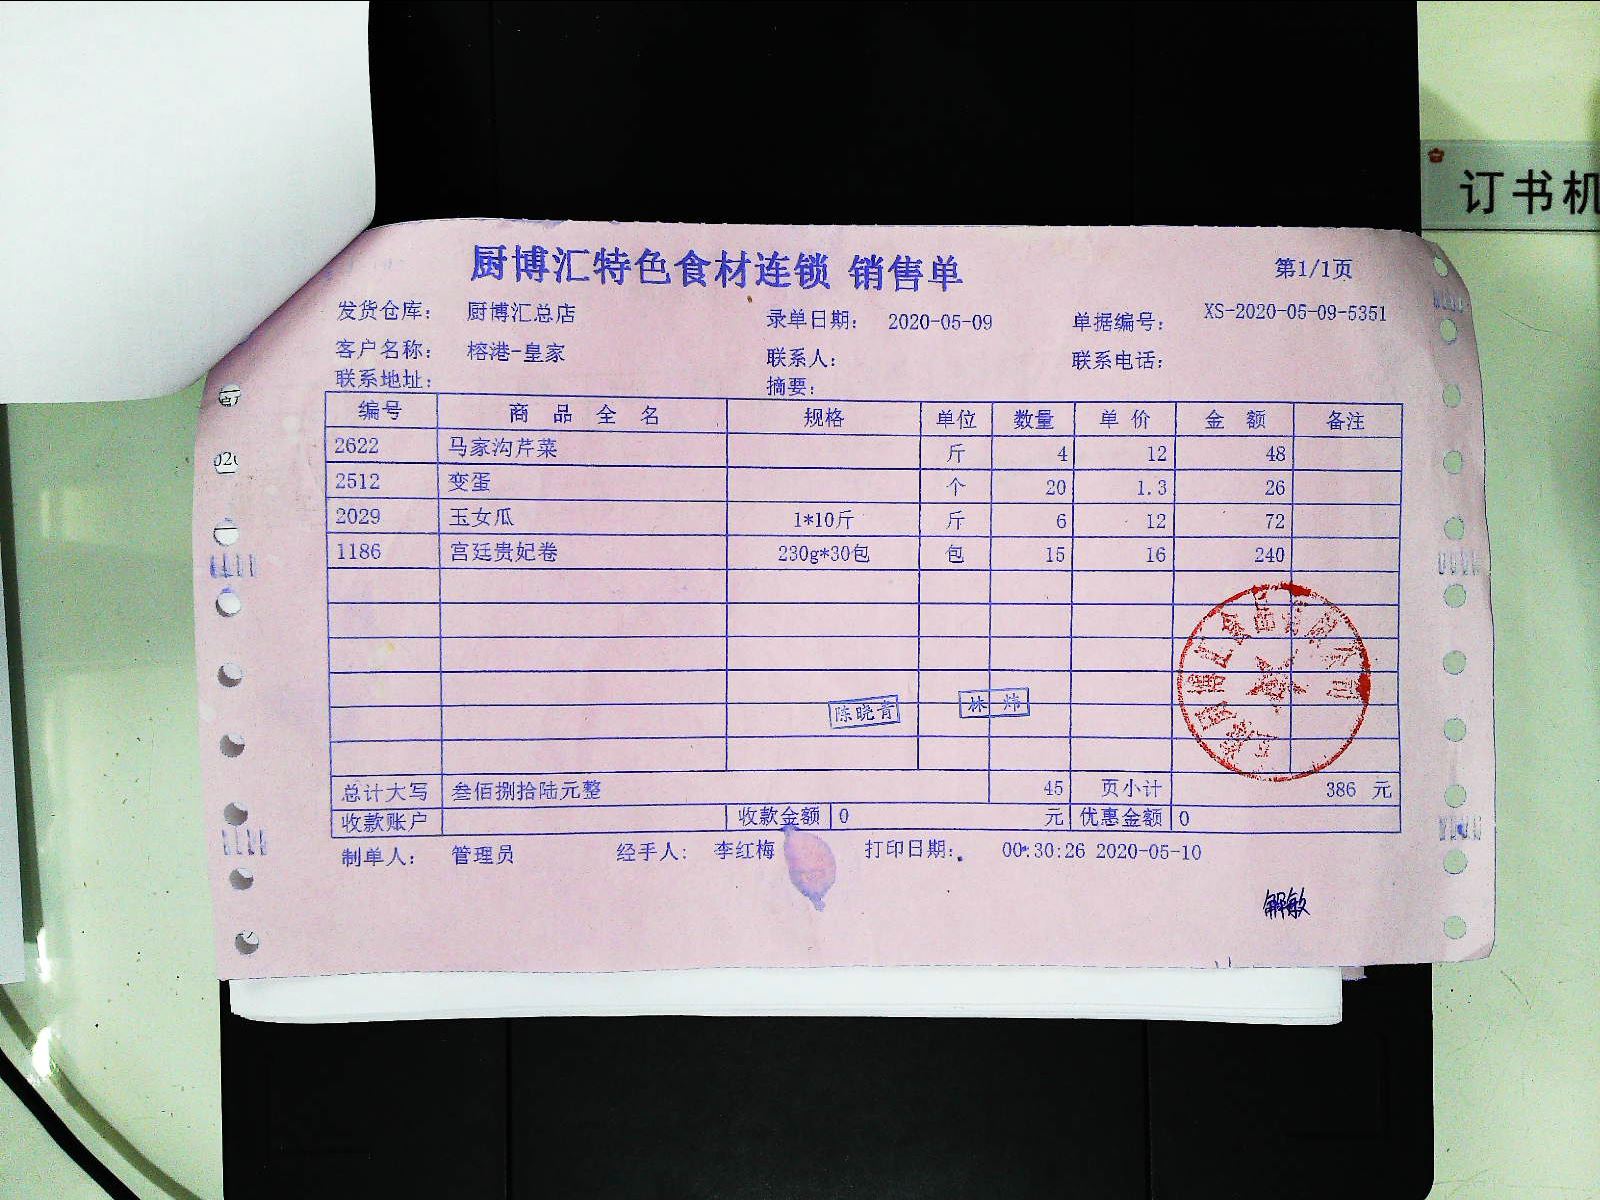 订书机
厨博汇特色食材连锁 销售单
第1/1页
发货仓库： 厨博汇总店 录单日期： 2020-05-09 单据编号： XS-2020-05-09-5351
客户名称： 榕港-皇家 联系人： 联系电话：
联系地址： 摘要：
编号 商品全名 规格 单位 数量 单价 金额 备注
2622 马家沟芹菜 斤 4 12 48
2512 变蛋 个 20 1.3 26
2029 玉女瓜 1*10斤 斤 6 12 72
1186 宫廷贵妃卷 230g*30包 包 15 16 240
陈晓青 林炜
总计大写 叁佰捌拾陆元整 45 页小计 386 元
收款账户 收款金额 0 元 优惠金额 0
制单人： 管理员 经手人： 李红梅 打印日期： 00:30:26 2020-05-10
解敏